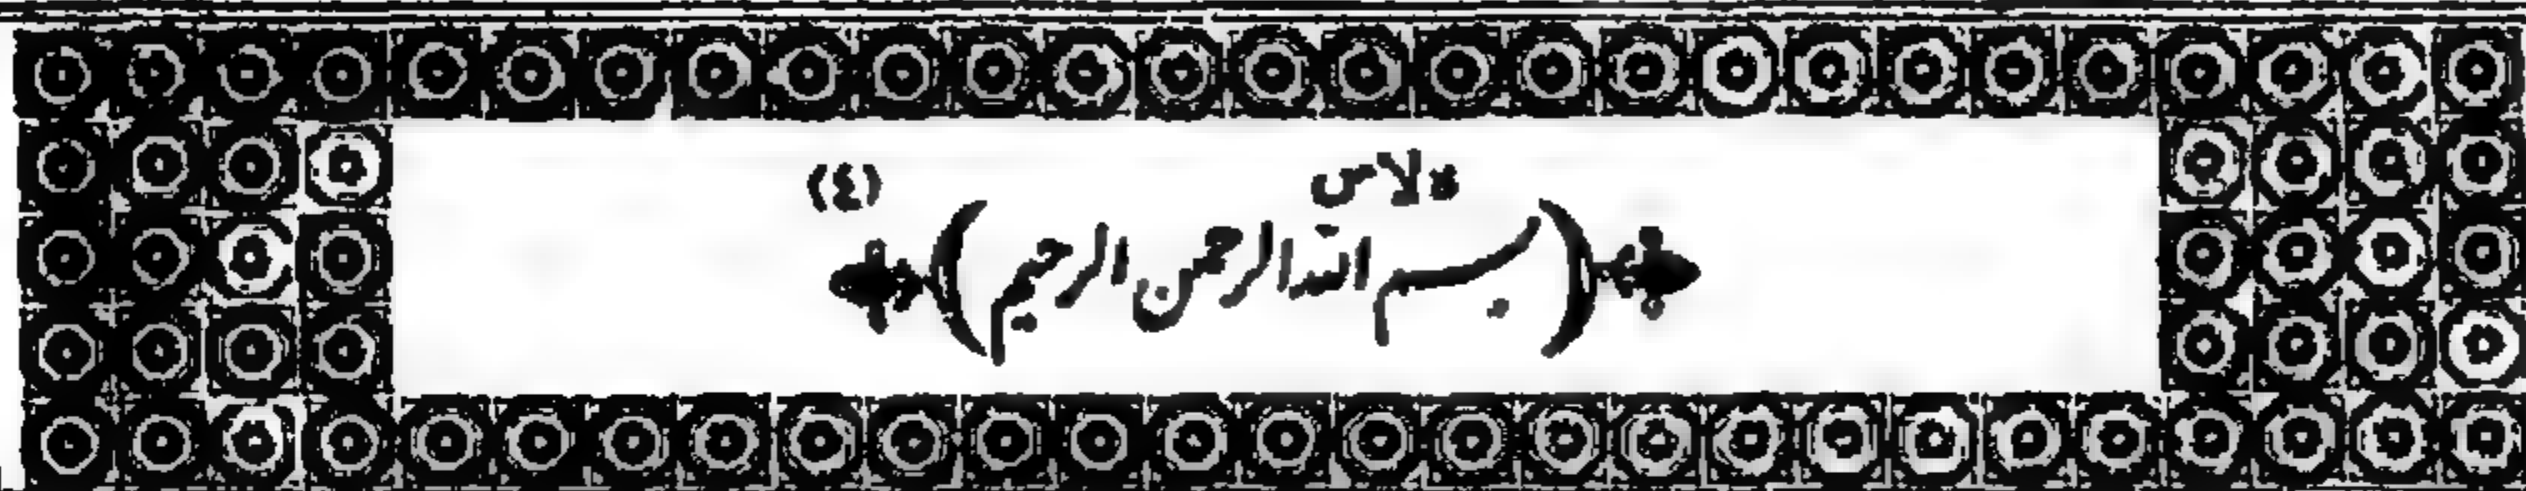 لاص (٤)
(بسم الله الرحمن الرحيم)